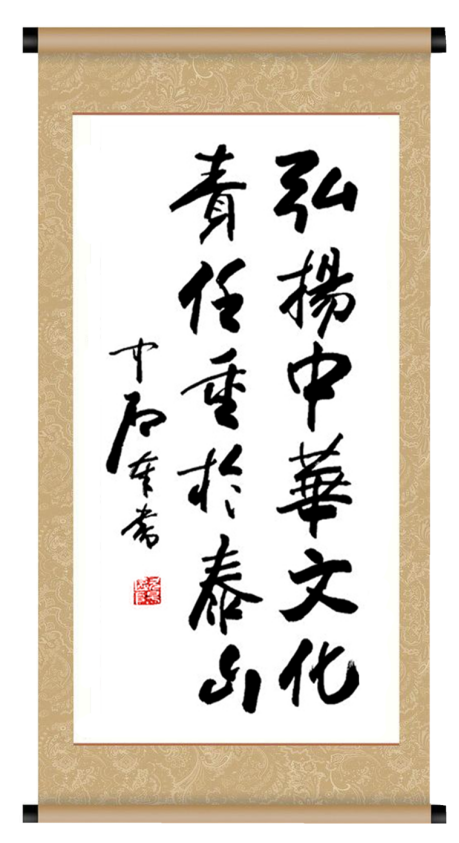 弘揚中華文化
責任重於泰山
中石奉書